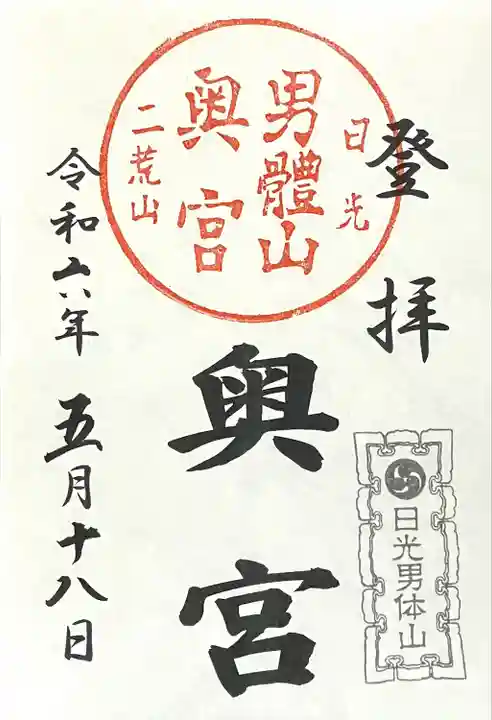 登拝
日光
男體山
奥宮
二荒山
日光男体山
奥宮
令和六年 五月十八日